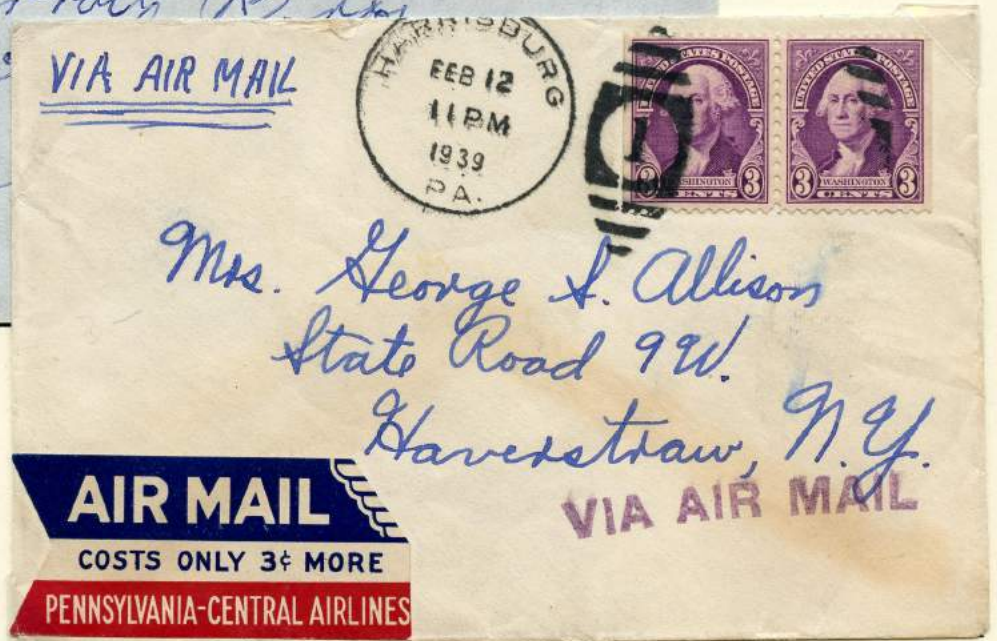 VIA AIR MAIL
HARRISBURG
FEB 12
11 PM
1939
PA.
1
UNITED STATES POSTAGE
WASHINGTON
3 CENTS 3
UNITED STATES POSTAGE
3 WASHINGTON 3
CENTS
Mrs. George S. Allison
State Road 9W.
Haverstraw, N.Y.
VIA AIR MAIL
AIR MAIL
COSTS ONLY 3¢ MORE
PENNSYLVANIA-CENTRAL AIRLINES